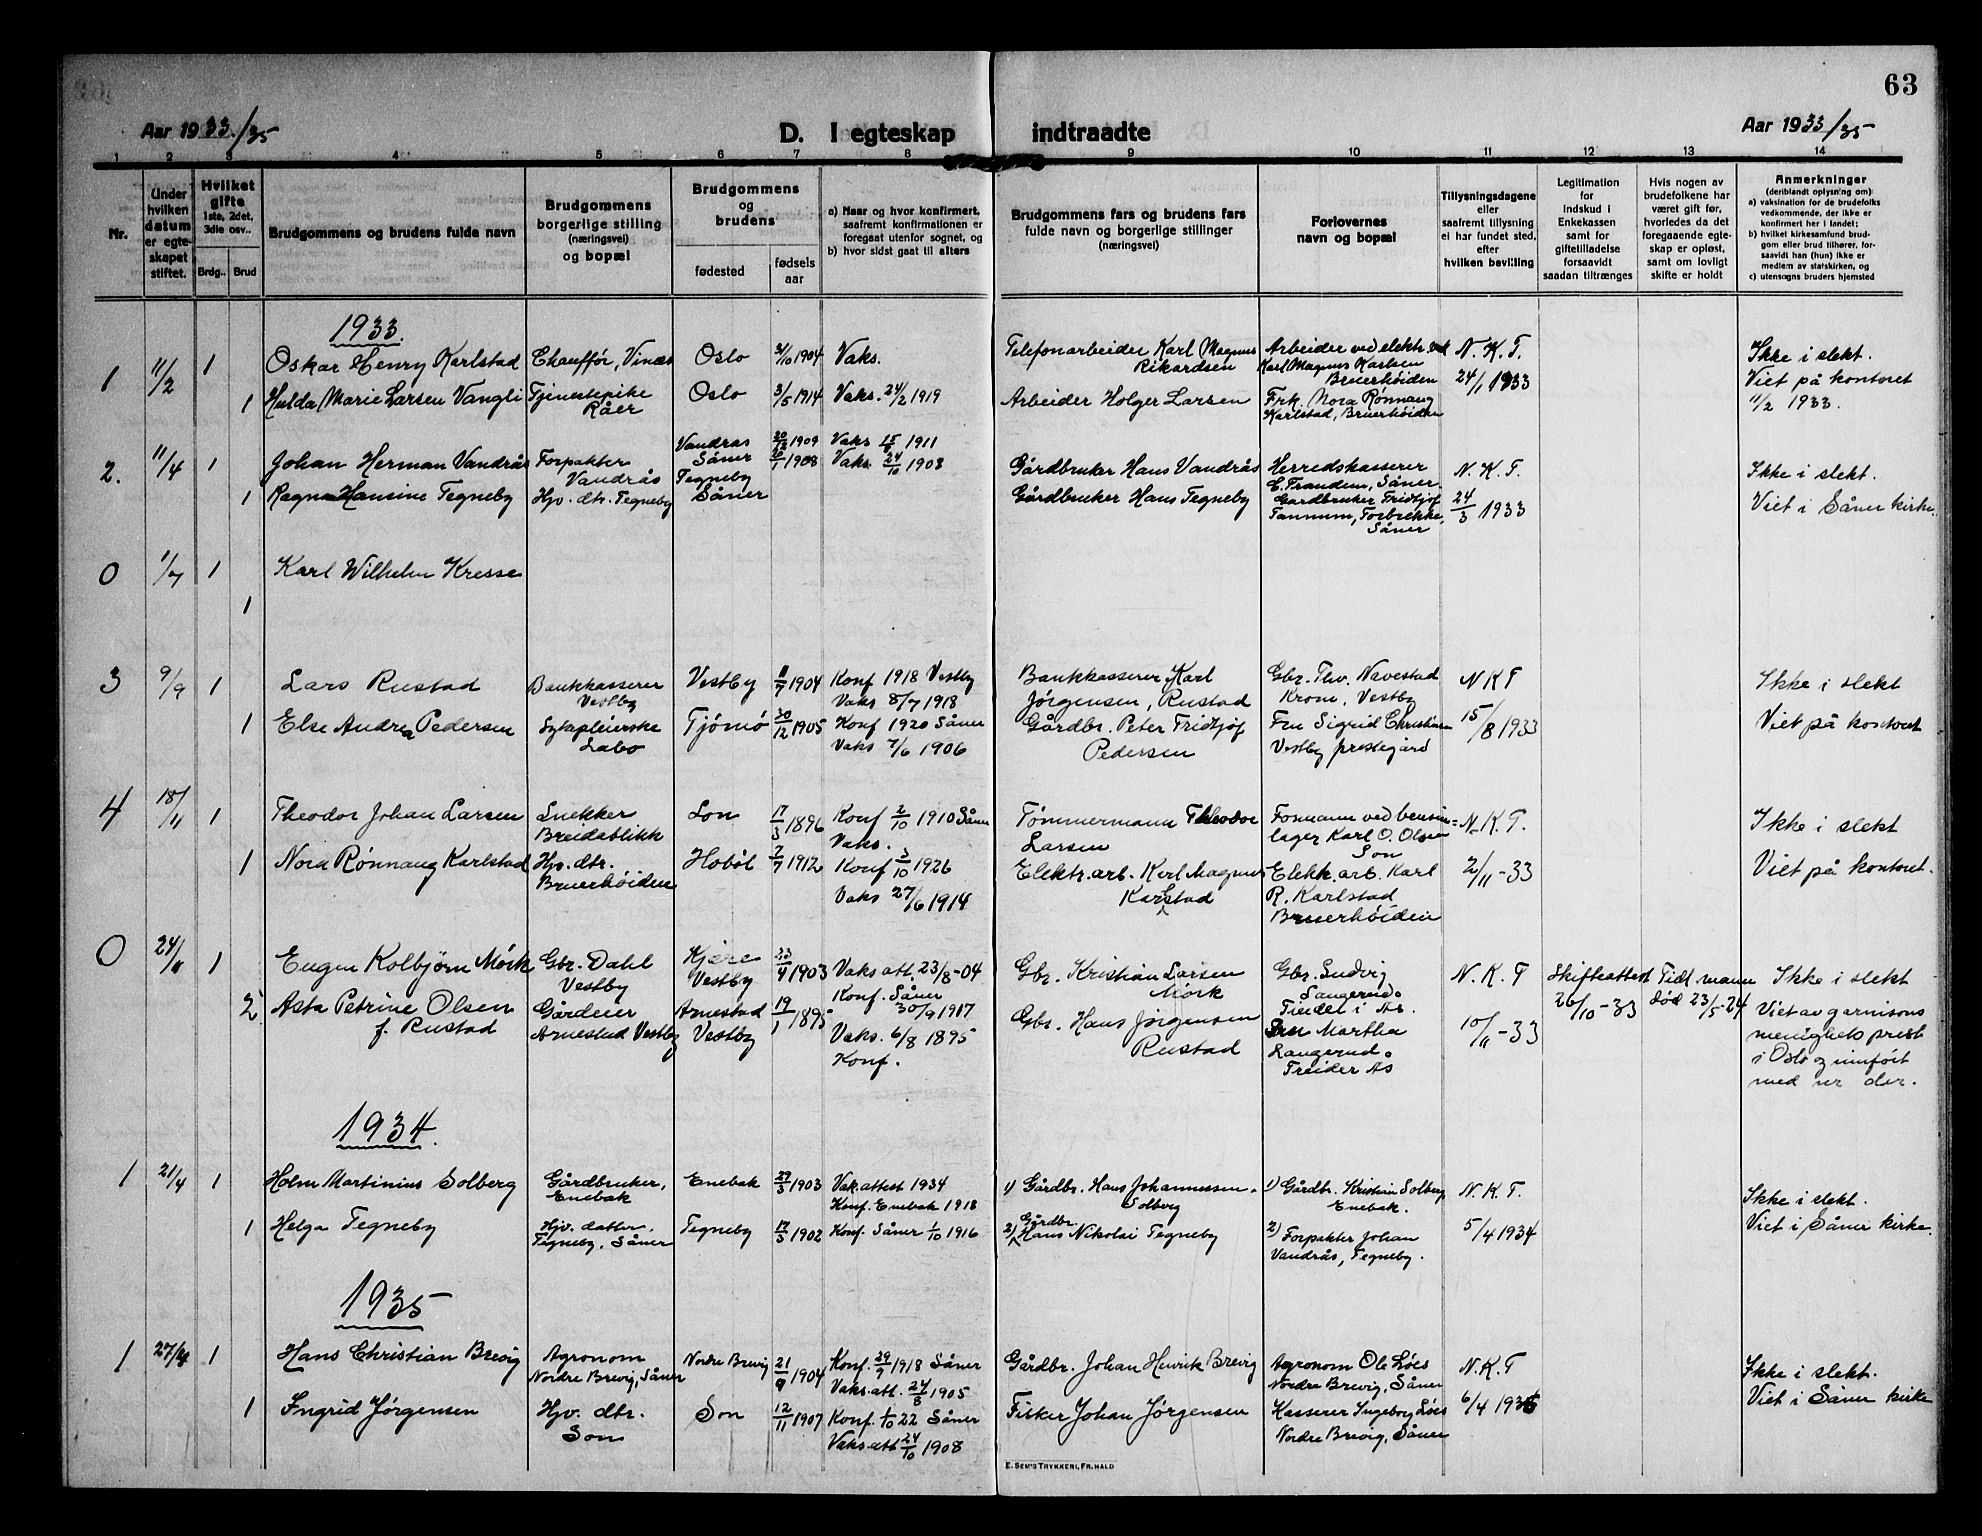 63
Aar 1933/35
D. I egteskap indtraadte
Aar 1933/35
1 2 3 4 5 6 7 8 9 10 11 12 13 14
Nr.
Under hvilken datum er egteskapet stiftet.
Hvilket gifte 1ste, 2det, 3die osv..
Brdg.. Brud
Brudgommens og brudens fulde navn
Brudgommens borgerlige stilling (næringsvei) og bopæl
Brudgommens og brudens
fødested
fødsels aar
a) Naar og hvor konfirmert, saafremt konfirmationen er foregaat utenfor sognet, og
b) hvor sidst gaat til alters
Brudgommens fars og brudens fars fulde navn og borgerlige stillinger (næringsvei)
Forlovernes navn og bopæl
Tillysningsdagene eller saafremt tillysning ei har fundet sted, efter hvilken bevilling
Legitimation for Indskud i Enkekassen samt for giftetilladelse forsaavidt saadan tiltrænges
Hvis nogen av brudefolkene har været gift før, hvorledes da det foregaaende egteskap er opløst, samt om lovligt skifte er holdt
Anmerkninger (deriblandt oplysning om):
a) vaksination for de brudefolks vedkommende, der ikke er konfirmert her i landet;
b) hvilket kirkesamfund brudgom eller brud tilhører, forsaavidt han (hun) ikke er medlem av statskirken, og
c) utensogns bruders hjemsted
1933.
1 11/2 1 Oskar Henry Karlstad Chauffør, Vinæs Oslo 3/10 1904 Vaks. Telefonarbeider Karl Magnus Rikardsen Arbeider ved elektr.verk Karl Magnus Karlsen Bruerhøiden N. K. T. 24/1 1933 Ikke i slekt. Viet på kontoret 11/2 1933.
1 Hulda Marie Larsen Vangli Tjenestepike Råer Oslo 3/5 1914 Vaks. 24/2 1919 Arbeider Holger Larsen Frk. Nora Rønnaug Karlstad, Bruerhøiden
2. 11/4 1 Johan Herman Vandrås Forpakter Vandrås Vandrås Såner 1909 Vaks 1911 Gårdbruker Hans Vandrås Herredskasserer Såner. N. K. T. 24/3 1933 Ikke i slekt.
1 Ragna Hansine Tegneby Hjv. dtr. Tegneby Tegneby Såner 1908 Vaks. 24/10 1908 Gårdbruker Hans Tegneby Gårdbruker Fridtjof Tannum, Forbrekke, Såner Viet i Såner kirke.
0 1/7 1 Karl Wilhelm Kresse
1
3 9/9 1 Lars Rustad Bankkasserer Vestby Vestby 1904 Konf 1918 Vestby Vaks 8/7 1918 Bankkasserer Karl Jørgensen, Rustad Gbr. Thv. Navestad Krom, Vestby N K T 15/8 1933 Ikke i slekt
1 Else Andrea Pedersen Sykepleierske Labo Tjømø 30/12 1905 Konf 1920 Såner Vaks 7/6 1906 Gårdbr. Peter Fridtjof Pedersen Fru Sigrid Christensen Vestby prestegård Viet på kontoret
4 18/11 1 Theodor Johan Larsen Snekker Breidablikk Son 17/3 1896 Konf 2/10 1910 Såner Vaks. Tømmermann Theodor Larsen Formann ved bensinlager Karl O. Olsen Son N. K. T. 2/11-33 Ikke i slekt
1 Nora Rønnaug Karlstad Hjv. dtr. Bruerhøiden Hobøl 2/7 1912 Konf 3/10 1926 Vaks 27/6 1914 Elektr.arb. Karl Magnus Karlstad Elektr. arb. Karl R. Karlstad Bruerhøiden Viet på kontoret.
0 24/11 1 Eugen Kolbjørn Mørk Gbr. Dahl Vestby Kjære Vestby 23/4 1903 Vaks att. 23/8-04 Konf. Såner 30/9 1917 Gbr. Kristian Larsen Mørk Gbr. Ludvig Langerud. N. K. T 10/11-33 Skifteattest 26/10-33 Tidl mann død 23/5-24 Ikke i slekt
2 Asta Petrine Olsen f. Rustad Gårdeier Arnestad Vestby Arnestad Vestby 19/1 1895 Vaks. 6/8 1895 Konf. Gbr. Hans Jørgensen Rustad Fru Martha Langerud. Treider Ås Viet av garnisons menighets prest i Oslo og innført med nr der.
1934.
1 21/4 1 Holm Martinius Solberg Gårdbruker, Enebak Enebak 29/3 1903 Vak. attest 1934 Konf. Enebak 1918 1) Gårdbr. Hans Johannessen Solberg 1) Gårdbr. Kristian Solberg, Enebak. N. K. T. 5/4 1934 Ikke i slekt.
1 Helga Tegneby Hjv. datter. Tegneby, Såner Tegneby 17/3 1902 Konf. Såner 1/10 1916 2) Gårdbr. Hans Nikolai Tegneby 2) Forpakter Johan Vandrås, Tegneby. Viet i Såner kirke.
1935
1 27/4 1 Hans Christian Brevig Agronom Nordre Brevig, Såner Nordre Brevig 21/9 1904 Konf. 29/9 1918 Såner Vaks. att. 24/8 1905 Gårdbr. Johan Henrik Brevig Agronom Ole Løes Nordre Brevig, Såner N. K. T 6/4 1935 Ikke i slekt.
1 Ingrid Jørgensen Hjv. dtr. Son Son 12/11 1907 Konf. 1/10 22 Såner Vaks. att 24/10 1908 Fisker Johan Jørgensen Kasserer Ingeborg Løes Nordre Brevig, Såner Viet i Såner kirke
E. SEM'S TRYKKERI, FR.HALD